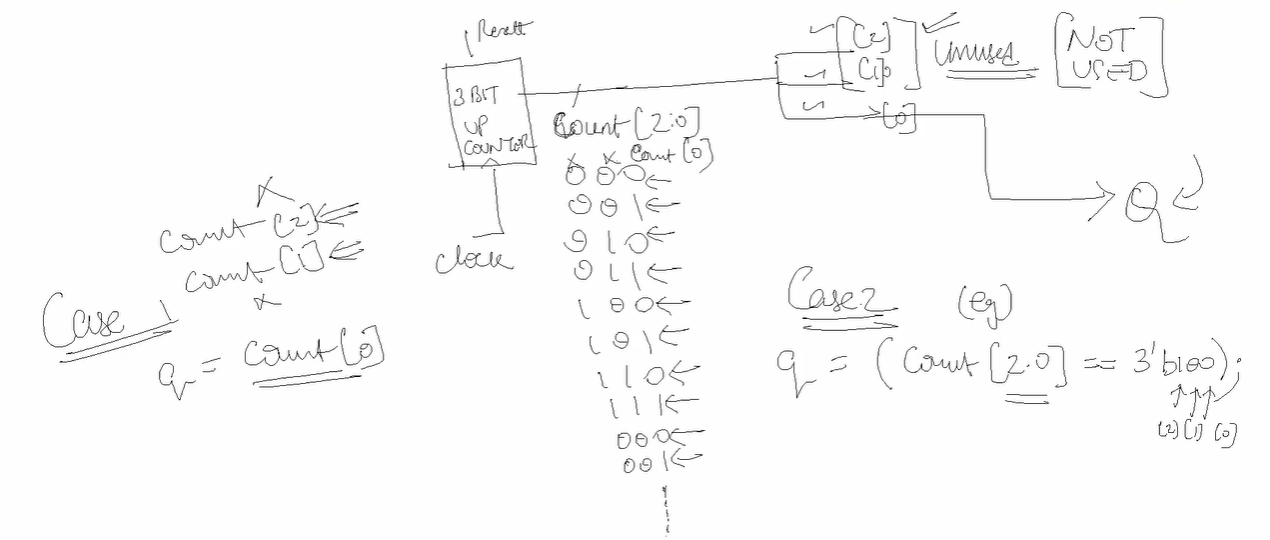 Reset
3 BIT
UP
COUNTOR
clock
Count [2:0]
x x Count [0]
0 0 0
0 0 1
0 1 0
0 1 1
1 0 0
1 0 1
1 1 0
1 1 1
0 0 0
0 0 1
[2]
[1]
[0]
Unused
[NOT
USED]
Q
x
count [2]
count [1]
x
Case 1
q = count [0]
Case 2 (eg)
q = (Count [2:0] == 3'b100);
[2] [1] [0]